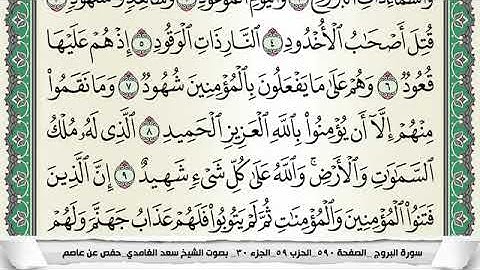 وَالسَّمَاءِ ذَاتِ الْبُرُوجِ ۝ وَالْيَوْمِ الْمَوْعُودِ ۝ وَشَاهِدٍ وَمَشْهُودٍ ۝
قُتِلَ أَصْحَٰبُ ٱلْأُخْدُودِ ۝٤ ٱلنَّارِ ذَاتِ ٱلْوَقُودِ ۝٥ إِذْ هُمْ عَلَيْهَا
قُعُودٌ ۝٦ وَهُمْ عَلَىٰ مَا يَفْعَلُونَ بِٱلْمُؤْمِنِينَ شُهُودٌ ۝٧ وَمَا نَقَمُوا۟
مِنْهُمْ إِلَّآ أَن يُؤْمِنُوا۟ بِٱللَّهِ ٱلْعَزِيزِ ٱلْحَمِيدِ ۝٨ ٱلَّذِى لَهُۥ مُلْكُ
ٱلسَّمَٰوَٰتِ وَٱلْأَرْضِ ۚ وَٱللَّهُ عَلَىٰ كُلِّ شَىْءٍ شَهِيدٌ ۝٩ إِنَّ ٱلَّذِينَ
فَتَنُوا۟ ٱلْمُؤْمِنِينَ وَٱلْمُؤْمِنَٰتِ ثُمَّ لَمْ يَتُوبُوا۟ فَلَهُمْ عَذَابُ جَهَنَّمَ وَلَهُمْ
سورة البروج _الصفحة ٥٩٠_الحزب ٥٩_الجزء ٣٠_ بصوت الشيخ سعد الغامدي_حفص عن عاصم